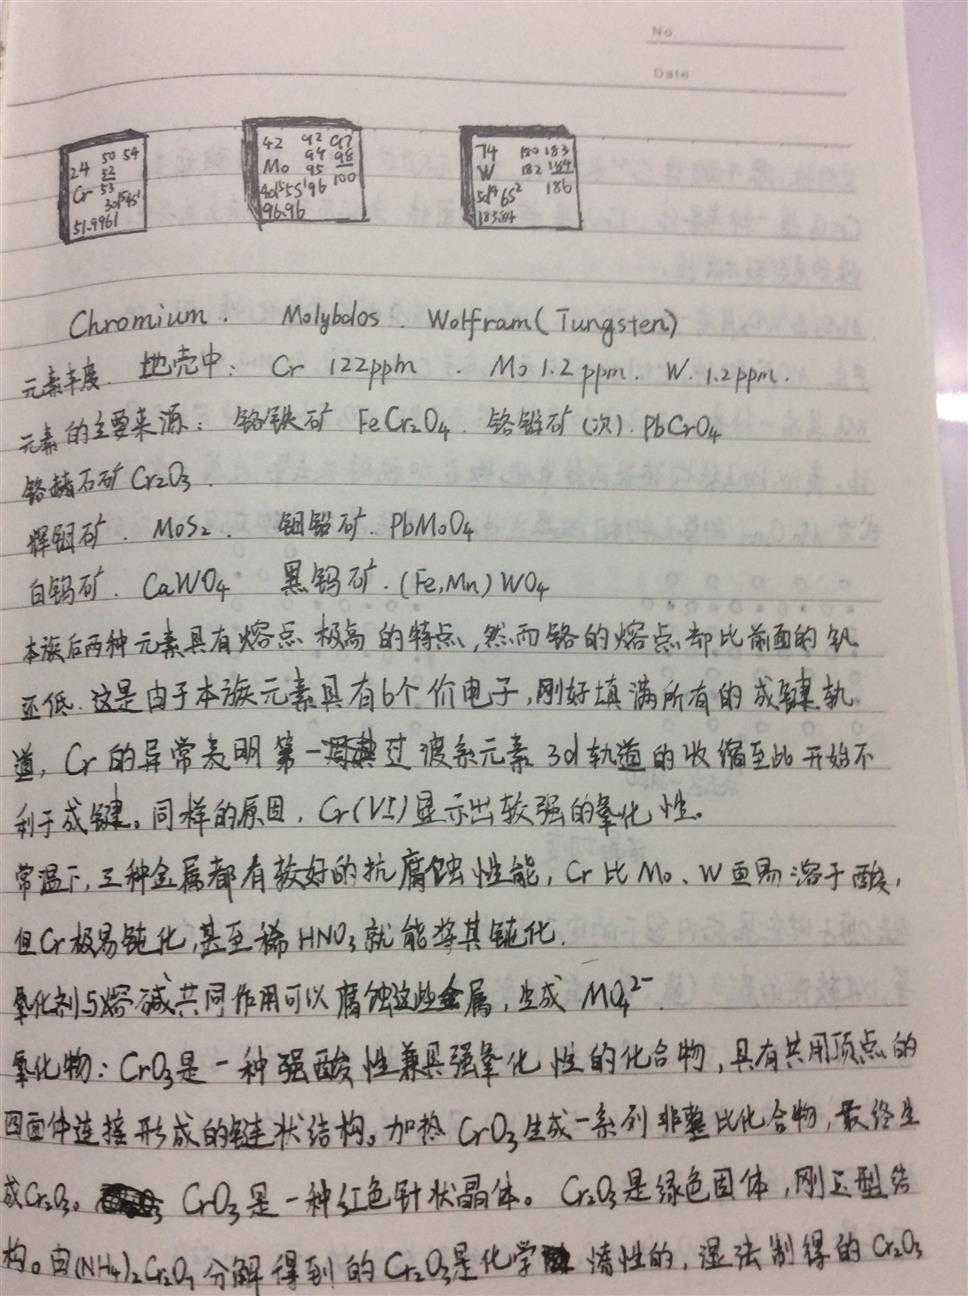 No.
Date
24 50 54
52
Cr 53
3d⁵4s¹
51.9961
42 92 97
94 98
Mo 95 100
4d⁵5s¹ 96
96.96
74 180 183
W 182 184
5d⁴6s² 186
183.84
Chromium. Molybdos. Wolfram(Tungsten)
元素丰度. 地壳中: Cr 122ppm. Mo 1.2ppm. W. 1.2ppm.
元素的主要来源: 铬铁矿 FeCr₂O₄. 铬铅矿(次). PbCrO₄
铬赭石矿 Cr₂O₃.
辉钼矿. MoS₂. 钼铅矿. PbMoO₄
白钨矿. CaWO₄ 黑钨矿. (Fe,Mn)WO₄
本族后两种元素具有熔点极高的特点,然而铬的熔点却比前面的钒
还低. 这是由于本族元素具有6个价电子,刚好填满所有的成键轨
道, Cr的异常表明第一过渡系元素3d轨道的收缩至此开始不
利于成键。同样的原因, Cr(VI)显示出较强的氧化性。
常温下,三种金属都有较好的抗腐蚀性能, Cr比Mo、W更易溶于酸,
但Cr极易钝化,甚至稀HNO₃就能将其钝化.
氧化剂与熔碱共同作用可以腐蚀这些金属,生成 MO₄²⁻.
氧化物: CrO₃是一种强酸性兼具强氧化性的化合物,具有共用顶点的
四面体连接形成的链状结构。加热CrO₃生成一系列非整比化合物,最终生
成Cr₂O₃。CrO₃是一种红色针状晶体。Cr₂O₃是绿色固体,刚玉型结
构。由(NH₄)₂Cr₂O₇分解得到的Cr₂O₃是化学惰性的,湿法制得的Cr₂O₃